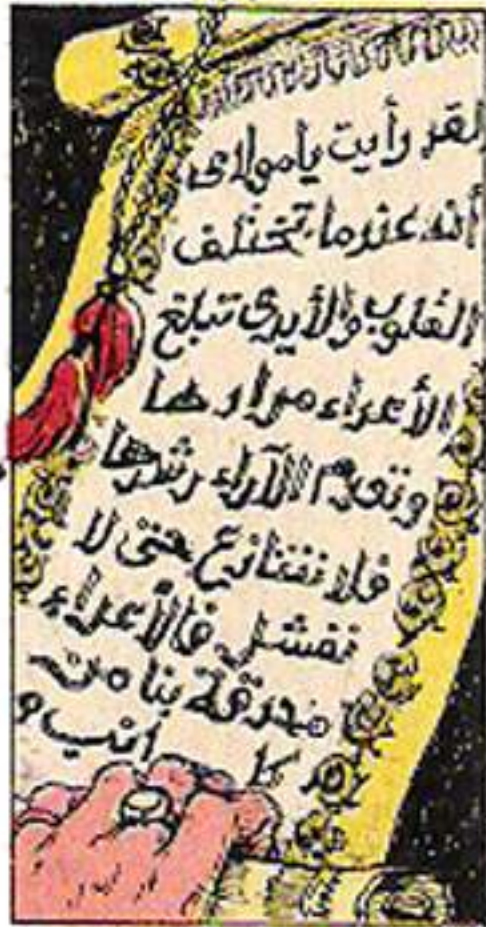 لقد رأيت يا مولاى
أنه عندما تختلف
القلوب والأيدى تبلغ
الأعداء مرادها
وتعدم الآراء رشدها
فلا نتنازع حتى لا
نفشل فالأعداء
محدقة بنا من
كل جانب و